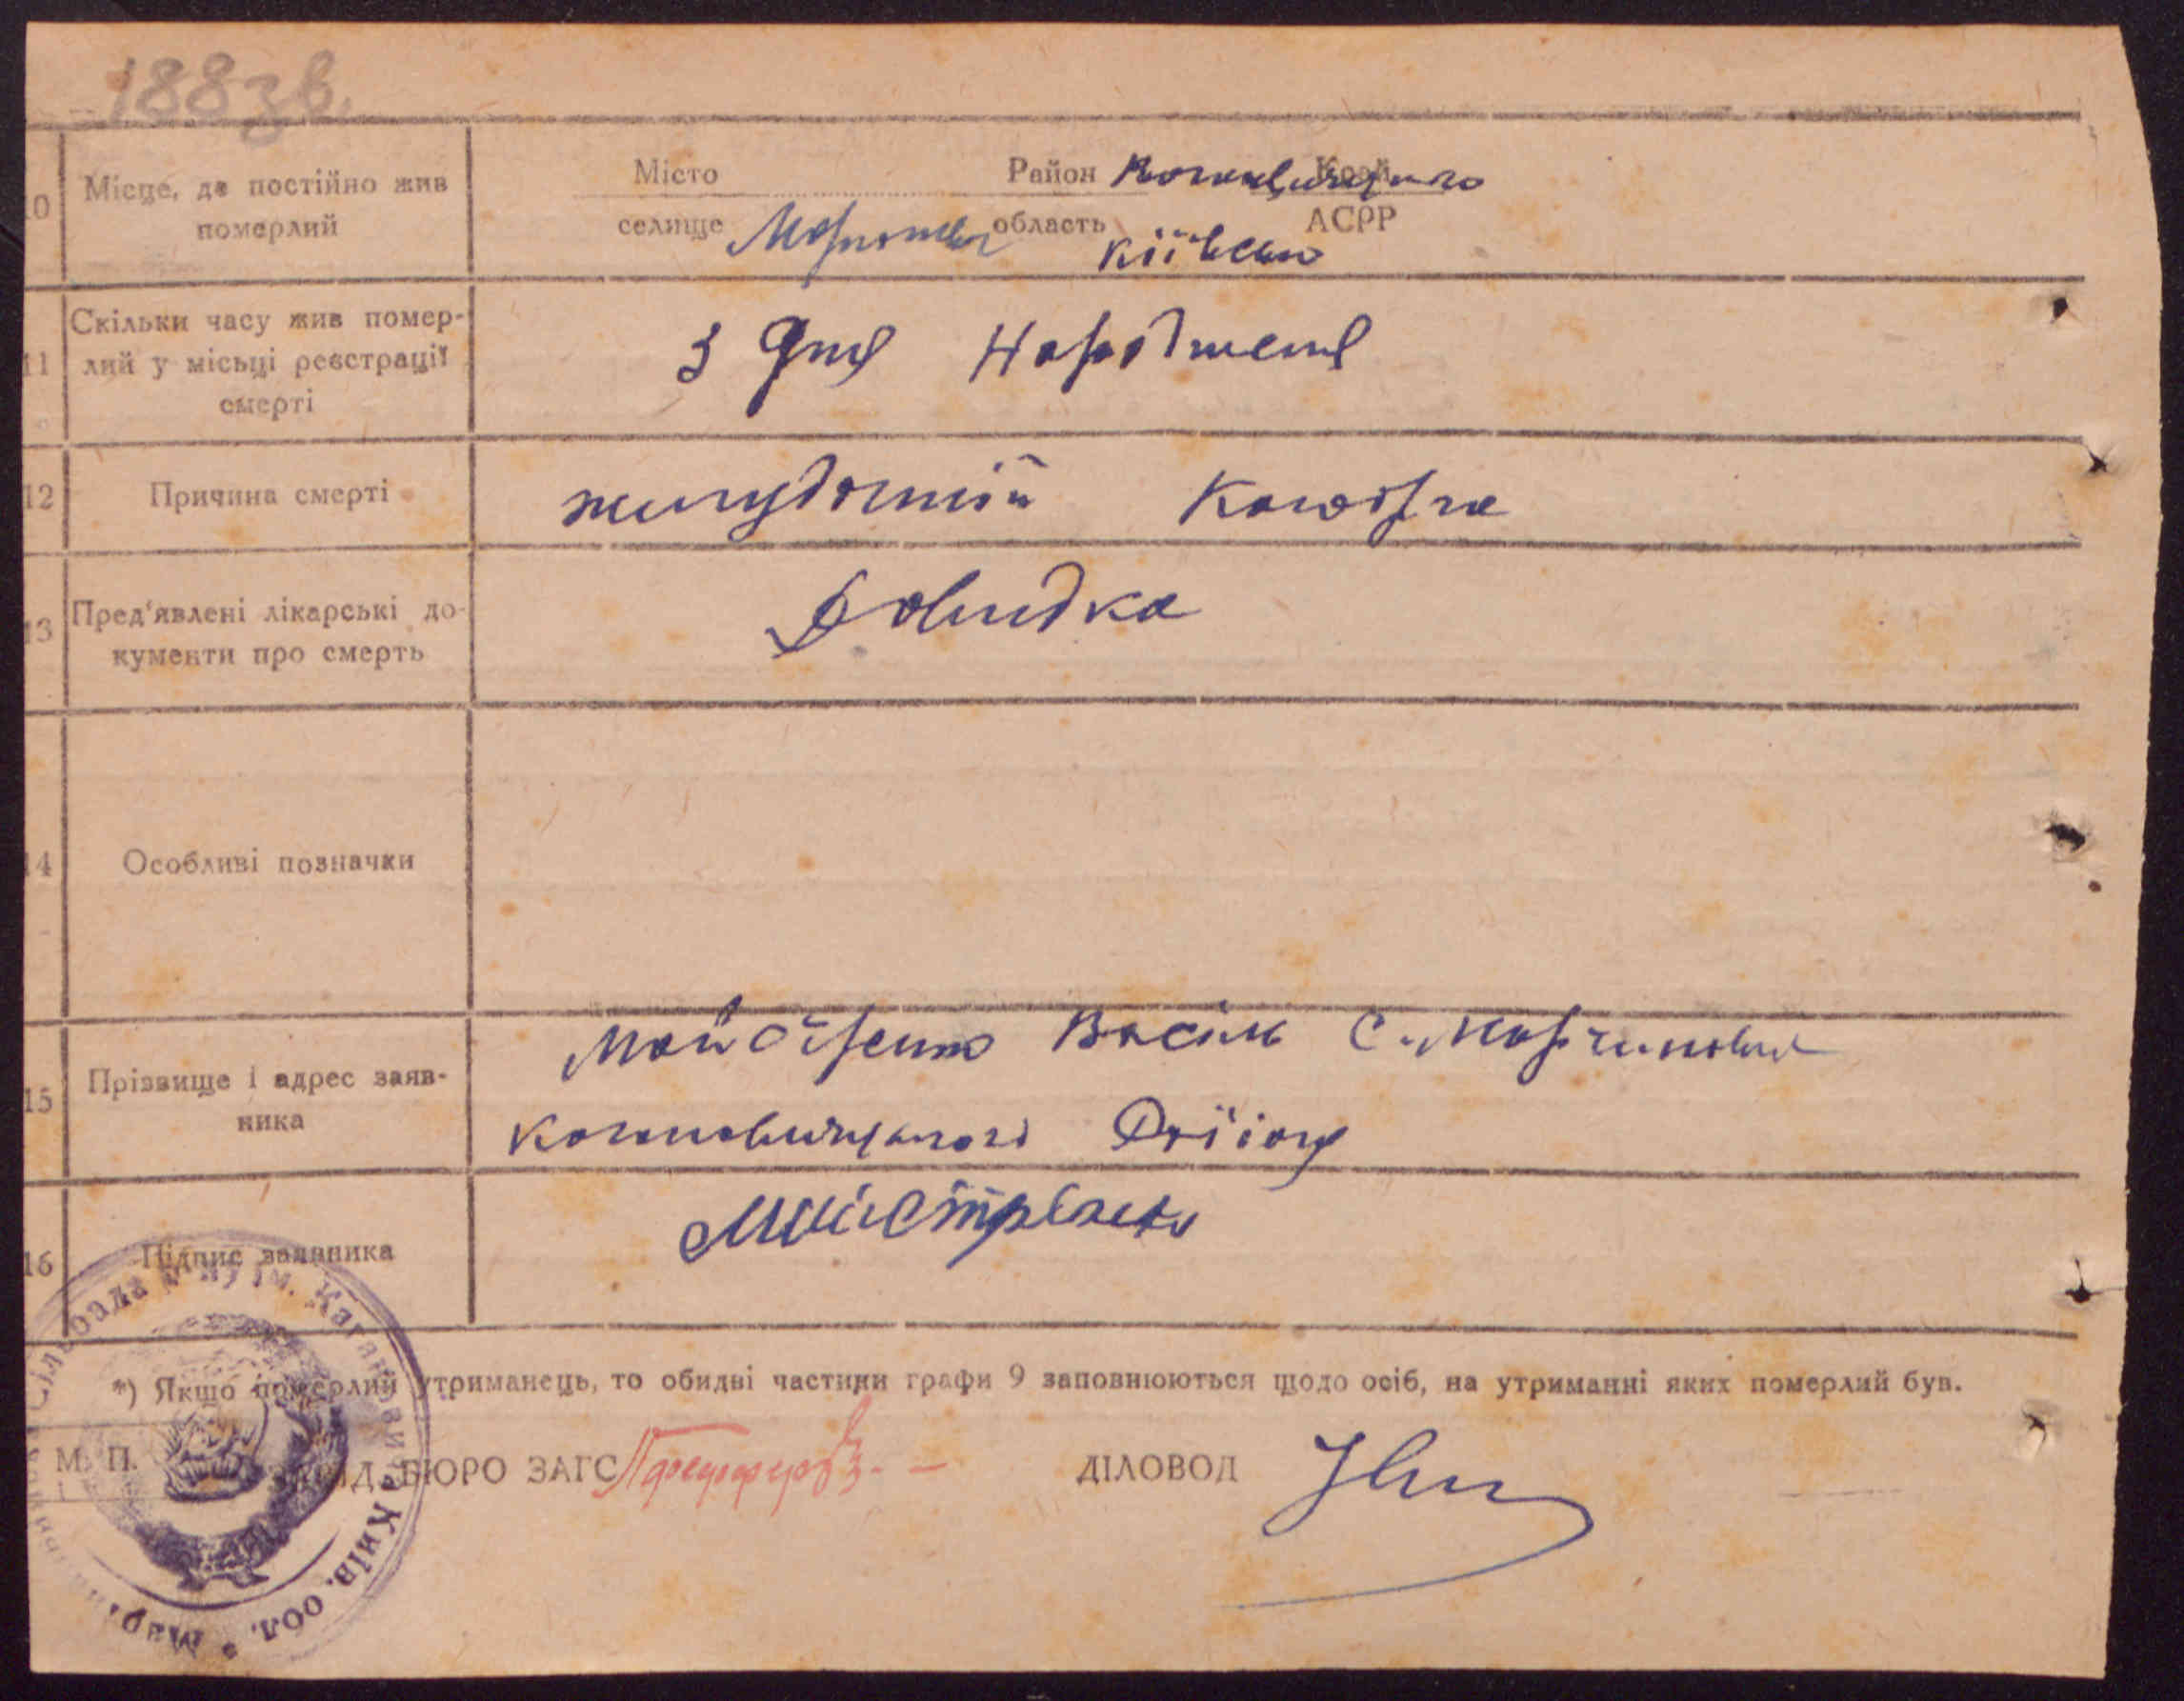 188 зв.
10 Місце, де постійно жив померлий
Місто Район Край
селище область АСРР
Київсько
11 Скільки часу жив помер-
лий у місьці реєстрації
смерті
З Дня Народженя
12 Причина смерті
жилудошній
13 Пред'явлені лікарські до-
кументи про смерть
Довидка
14 Особливі позначки
15 Прізвище і адрес заяв-
ника
Майстренко Васіль С.
Кагановичського Району
16 Підпис заявника
Майстренко
*) Якщо померлий утриманець, то обидві частини графи 9 заповнюються щодо осіб, на утриманні яких померлий був.
М. П. ЗАВІД. БЮРО ЗАГС ДІЛОВОД
Сільрада р-ну ім. Кагановича Київ. обл.